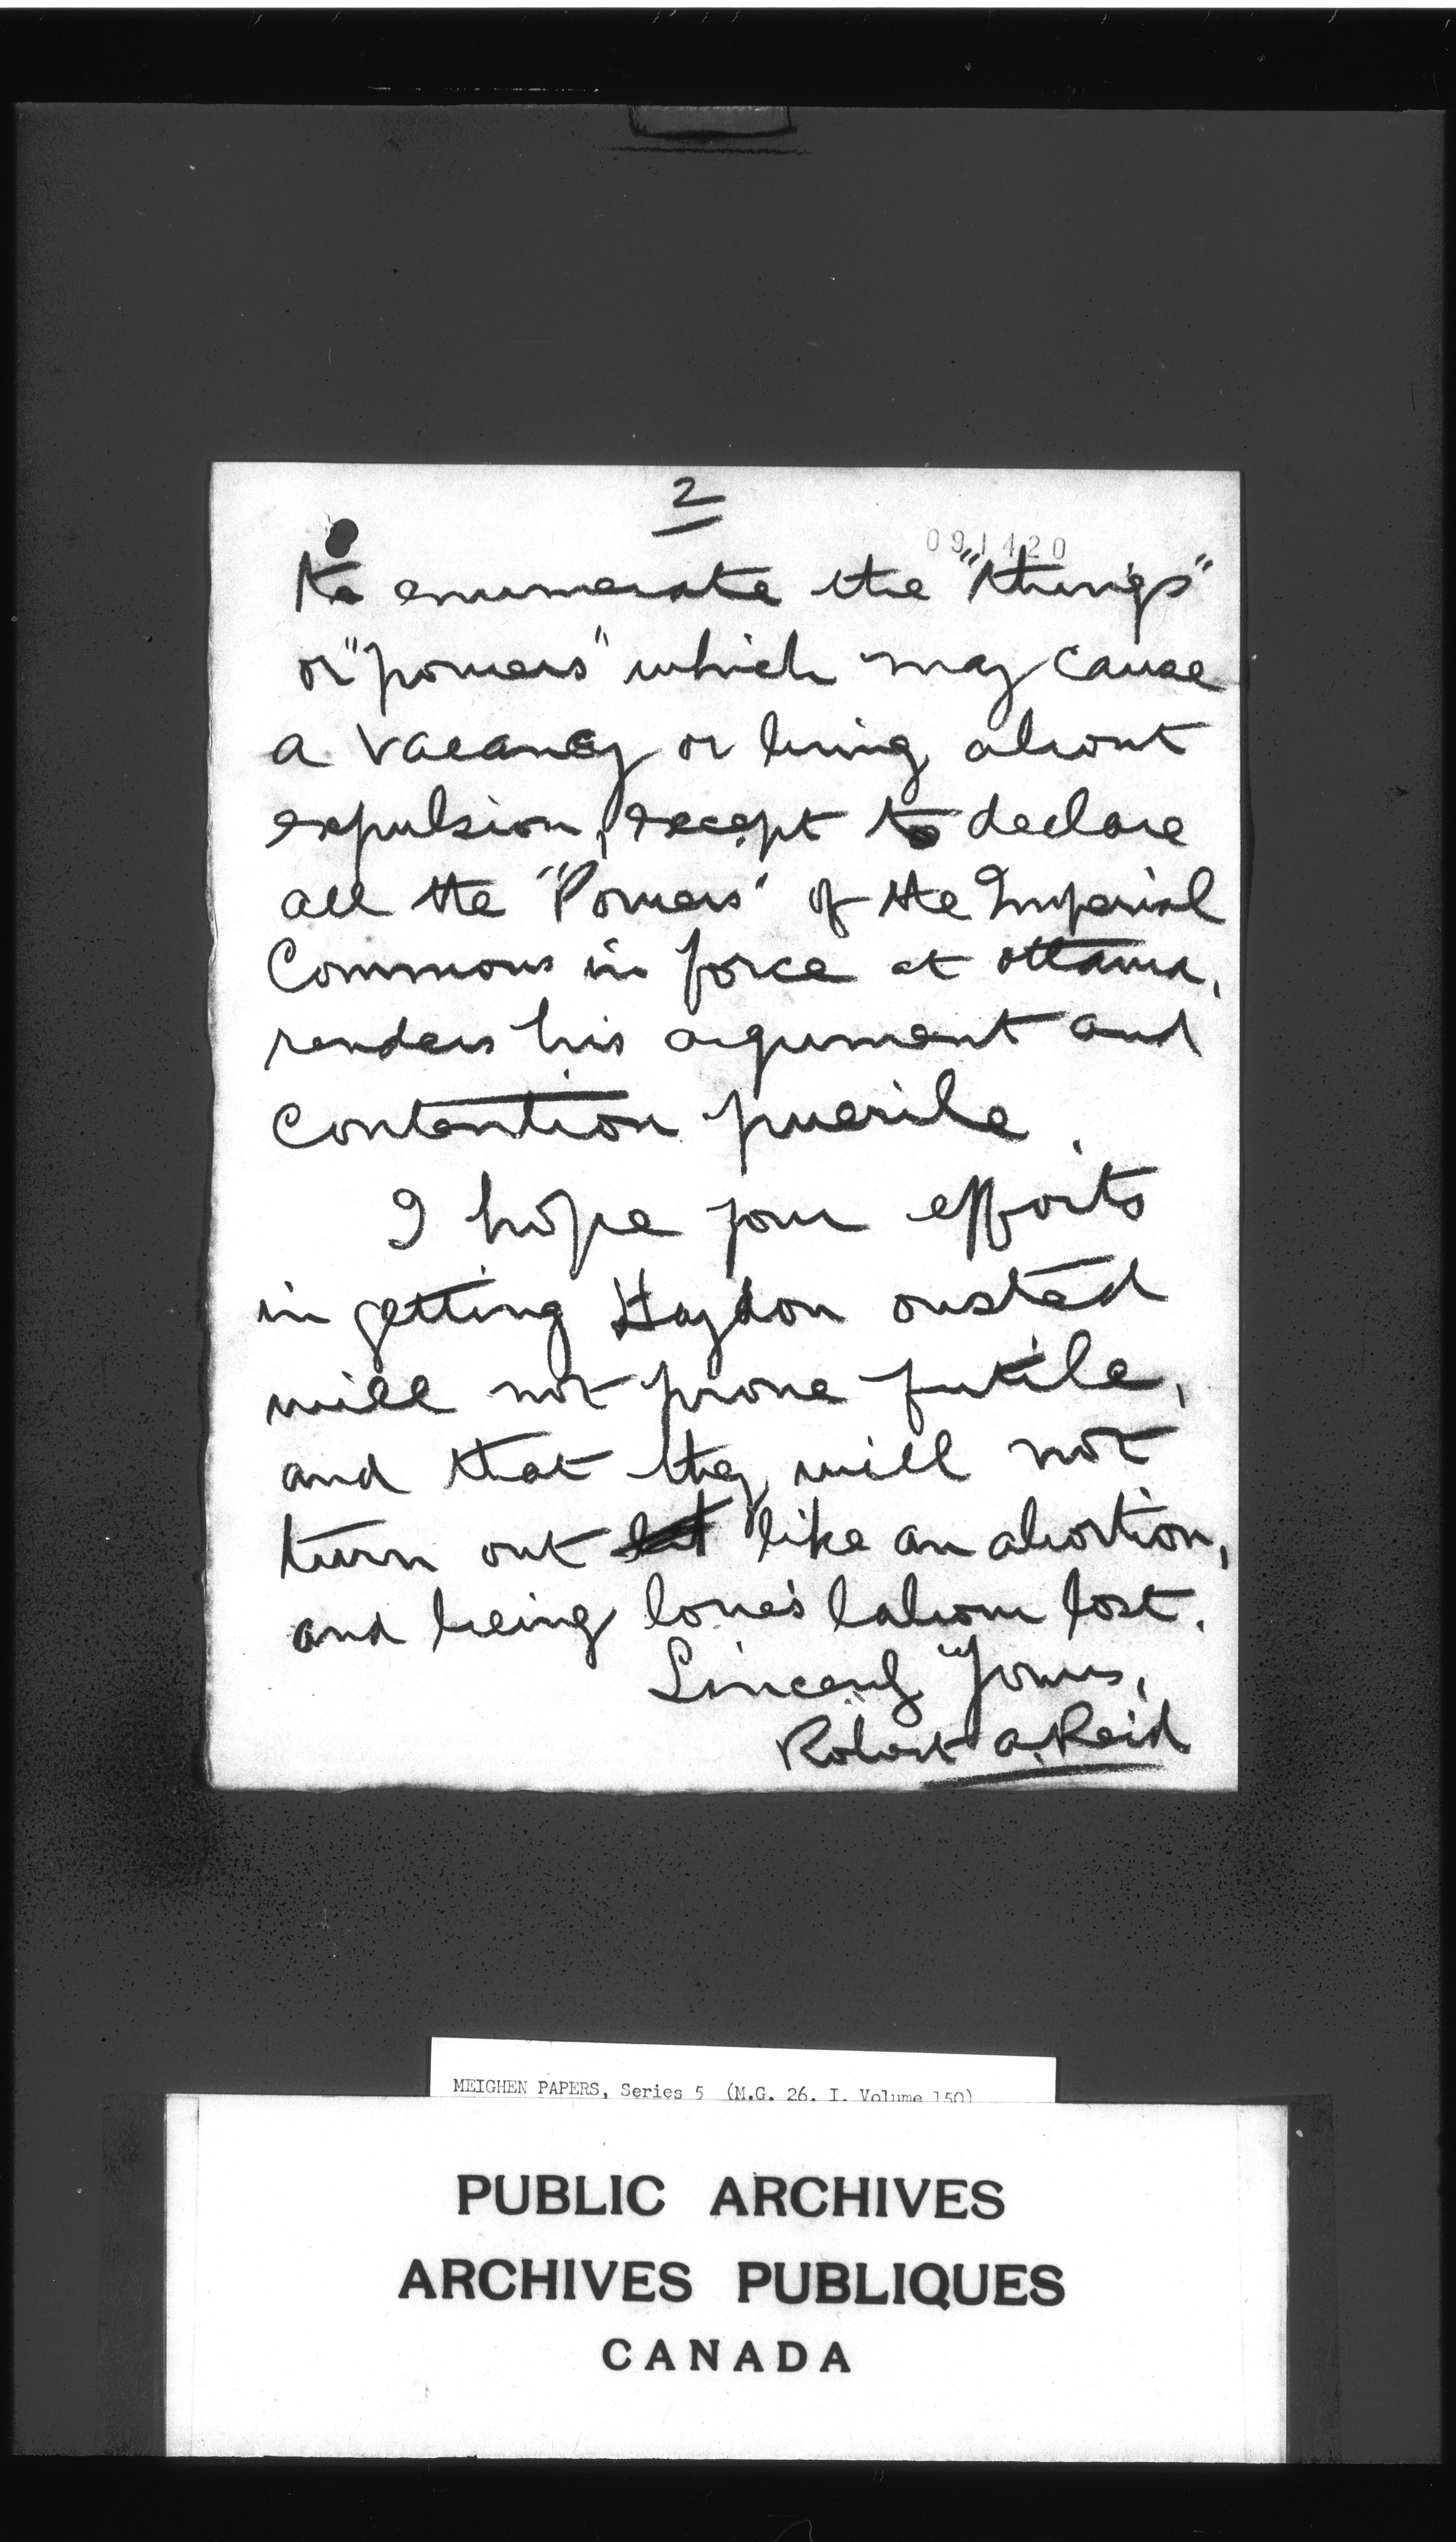 2
091420
to enumerate the "things"
or "powers" which may cause
a vacancy or bring about
expulsion, except to declare
all the "Powers" of the Imperial
Commons in force at Ottawa,
renders his argument and
contention puerile.
I hope your efforts
in getting Haydon ousted
will not prove futile,
and that they will not
turn out like an abortion,
and being love's labour lost.
Sincerely Yours,
Robert A. Reid
MEIGHEN PAPERS, Series 5 (M.G. 26, I, Volume 150)
PUBLIC ARCHIVES
ARCHIVES PUBLIQUES
CANADA